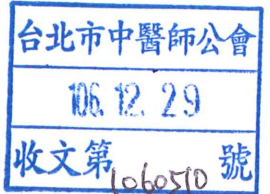 台北市中醫師公會
106.12.29
收文第1060510號